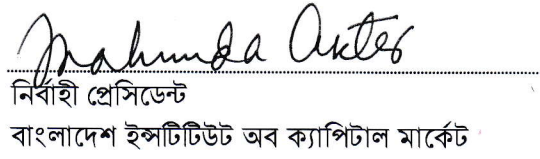 Mahmuda Akter
নির্বাহী প্রেসিডেন্ট
বাংলাদেশ ইন্সটিটিউট অব ক্যাপিটাল মার্কেট